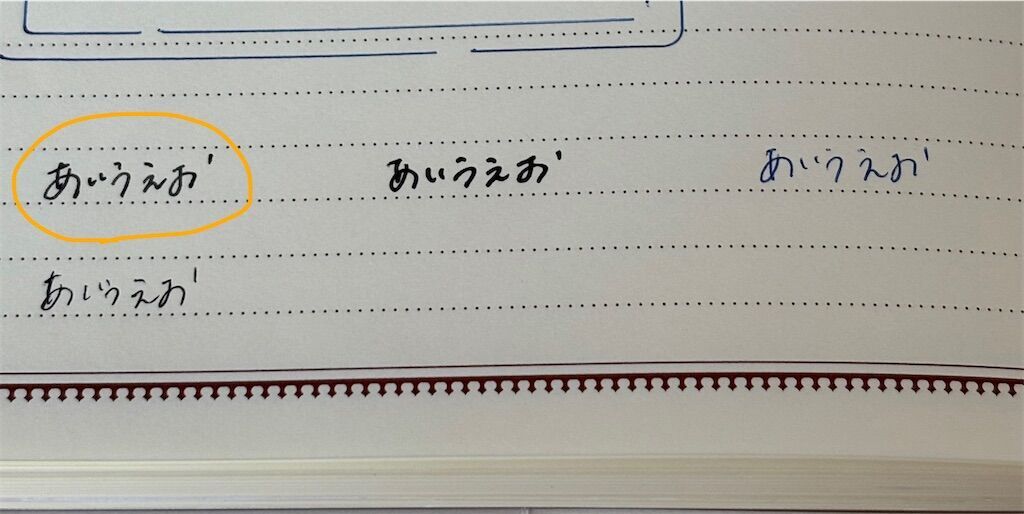 あいうえお あいうえお あいうえお
あいうえお